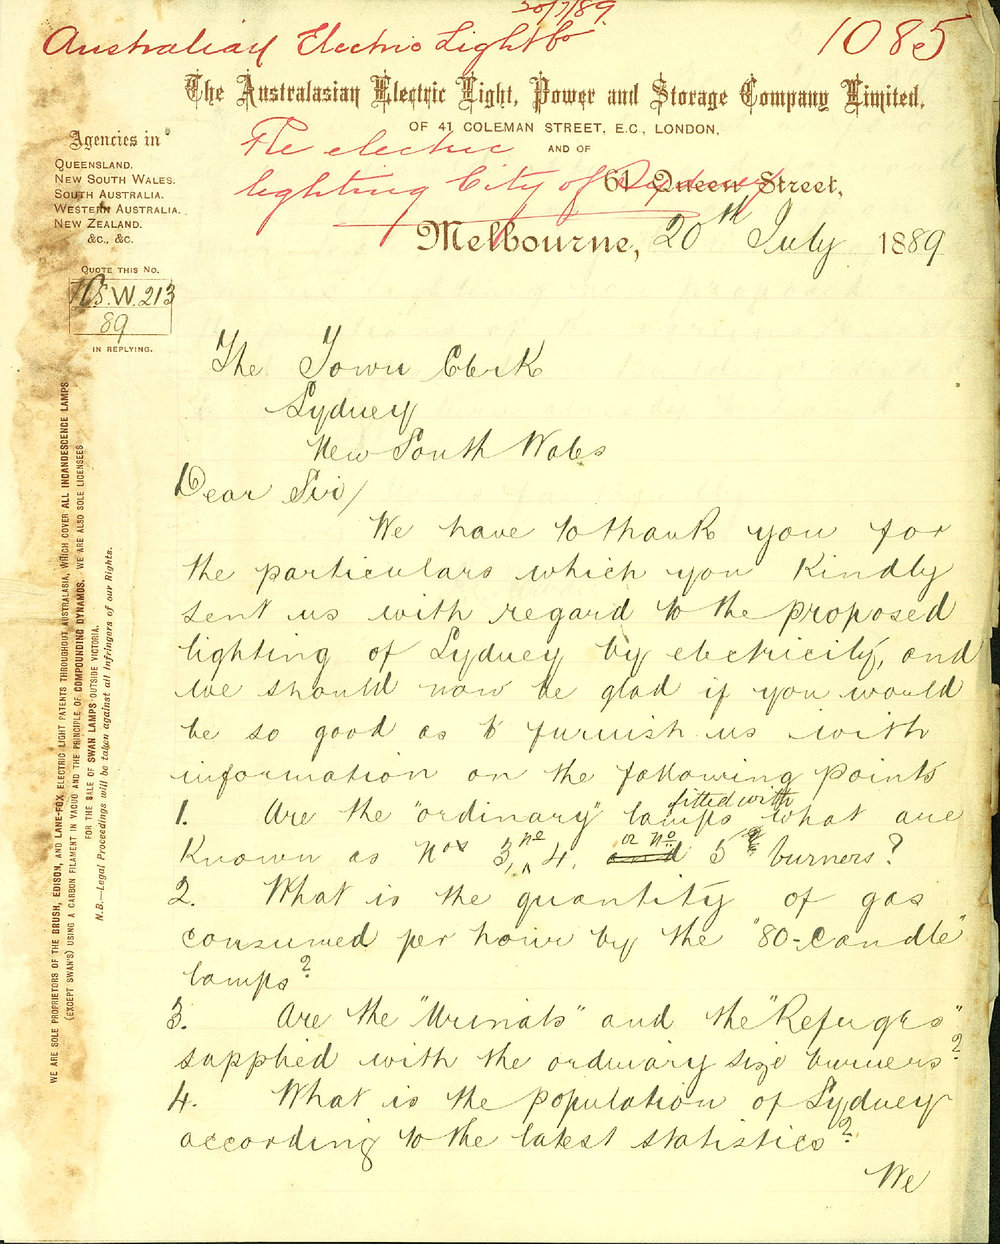 20/7/89.
Australian Electric Light Co
1085
The Australasian Electric Light, Power and Storage Company Limited.
OF 41 COLEMAN STREET, E.C., LONDON,
AND OF
The electric
lighting City of Sydney
61 Queen Street,
Melbourne, 20th July 1889
Agencies in
QUEENSLAND.
NEW SOUTH WALES.
SOUTH AUSTRALIA.
WESTERN AUSTRALIA.
NEW ZEALAND.
&c., &c.
QUOTE THIS No.
N.S.W. 213
89
IN REPLYING.
WE ARE SOLE PROPRIETORS OF THE BRUSH, EDISON, AND LANE-FOX ELECTRIC LIGHT PATENTS THROUGHOUT AUSTRALASIA, WHICH COVER ALL INCANDESCENCE LAMPS
(EXCEPT SWAN'S) USING A CARBON FILAMENT IN VACUO AND THE PRINCIPLE OF COMPOUNDING DYNAMOS. WE ARE ALSO SOLE LICENSEES
FOR THE SALE OF SWAN LAMPS OUTSIDE VICTORIA.
N.B.—Legal Proceedings will be taken against all infringers of our Rights.
The Town Clerk
Sydney
New South Wales
Dear Sir/
We have to thank you for
the particulars which you kindly
sent us with regard to the proposed
lighting of Sydney by electricity, and
we should now be glad if you would
be so good as to furnish us with
information on the following points
1. Are the "ordinary" lamps fitted with what are
known as Nos 3, no 4, and or no 5 burners?
2. What is the quantity of gas
consumed per hour by the "80-candle"
lamps?
3. Are the "Urinals" and the "Refuges"
supplied with the ordinary size burners?
4. What is the population of Sydney
according to the latest statistics?
We